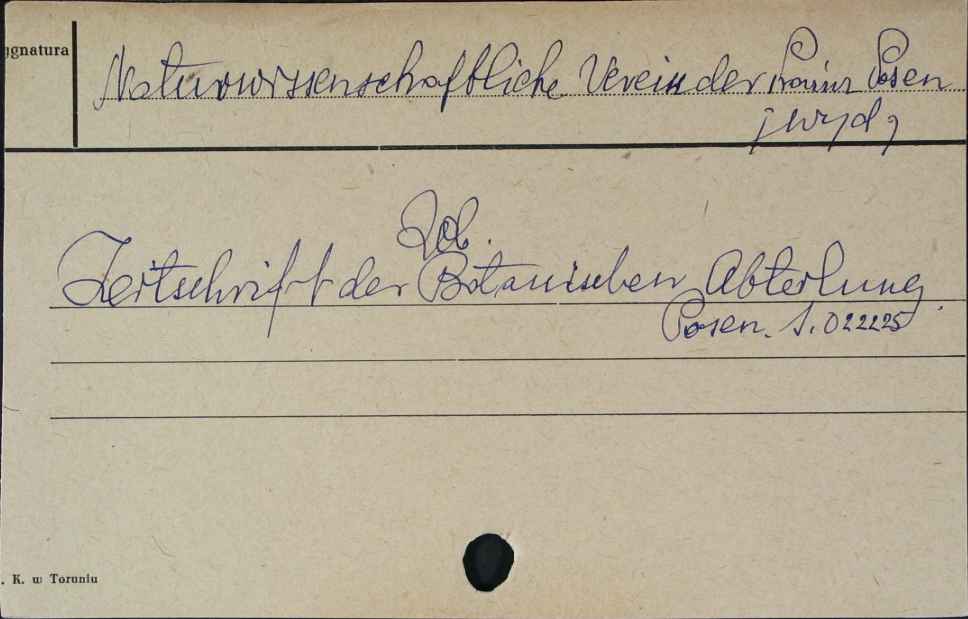 ygnatura
Naturwissenschaftliche Verein der Provinz Posen
j wyd.
Zob.
Zeitschrift der Botanischen Abteilung.
Posen. S. 022225
. K. w Toruniu